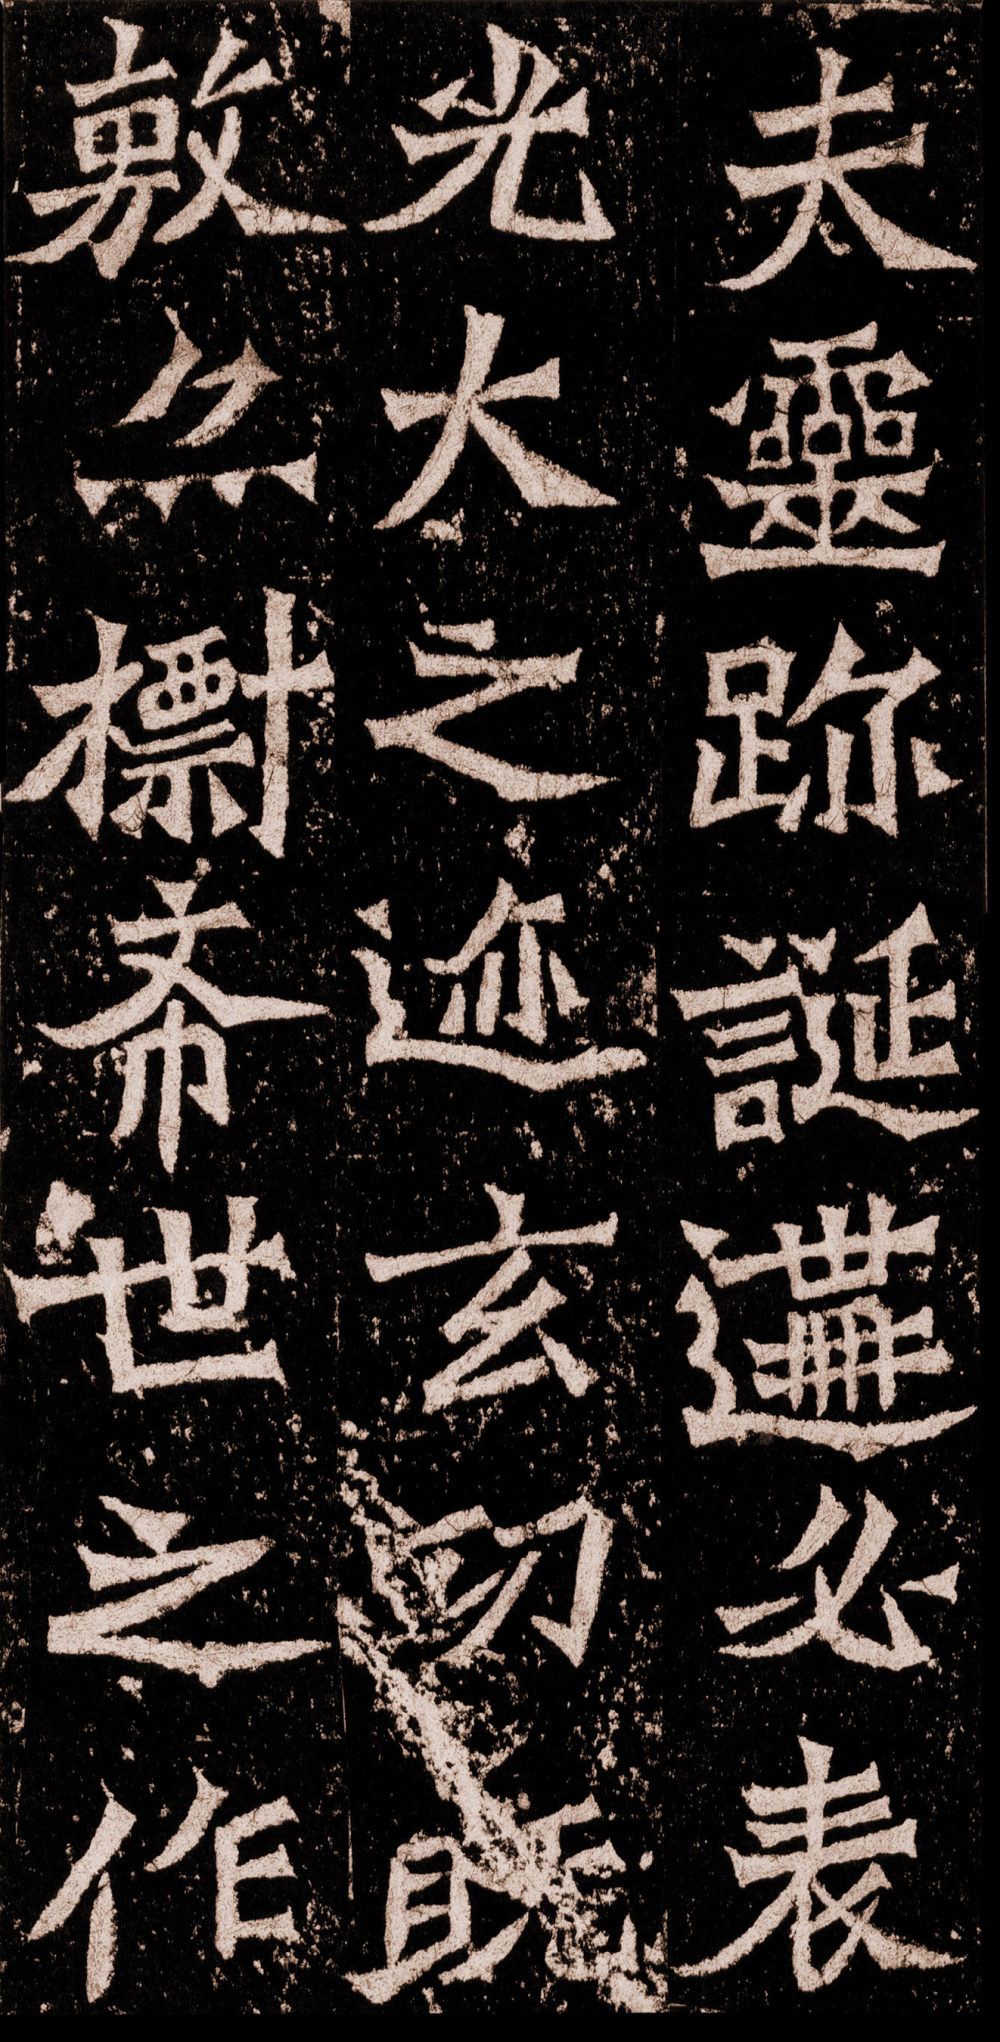 夫靈跡誕遘必表
光大之迹玄功既
敷亦標希世之作